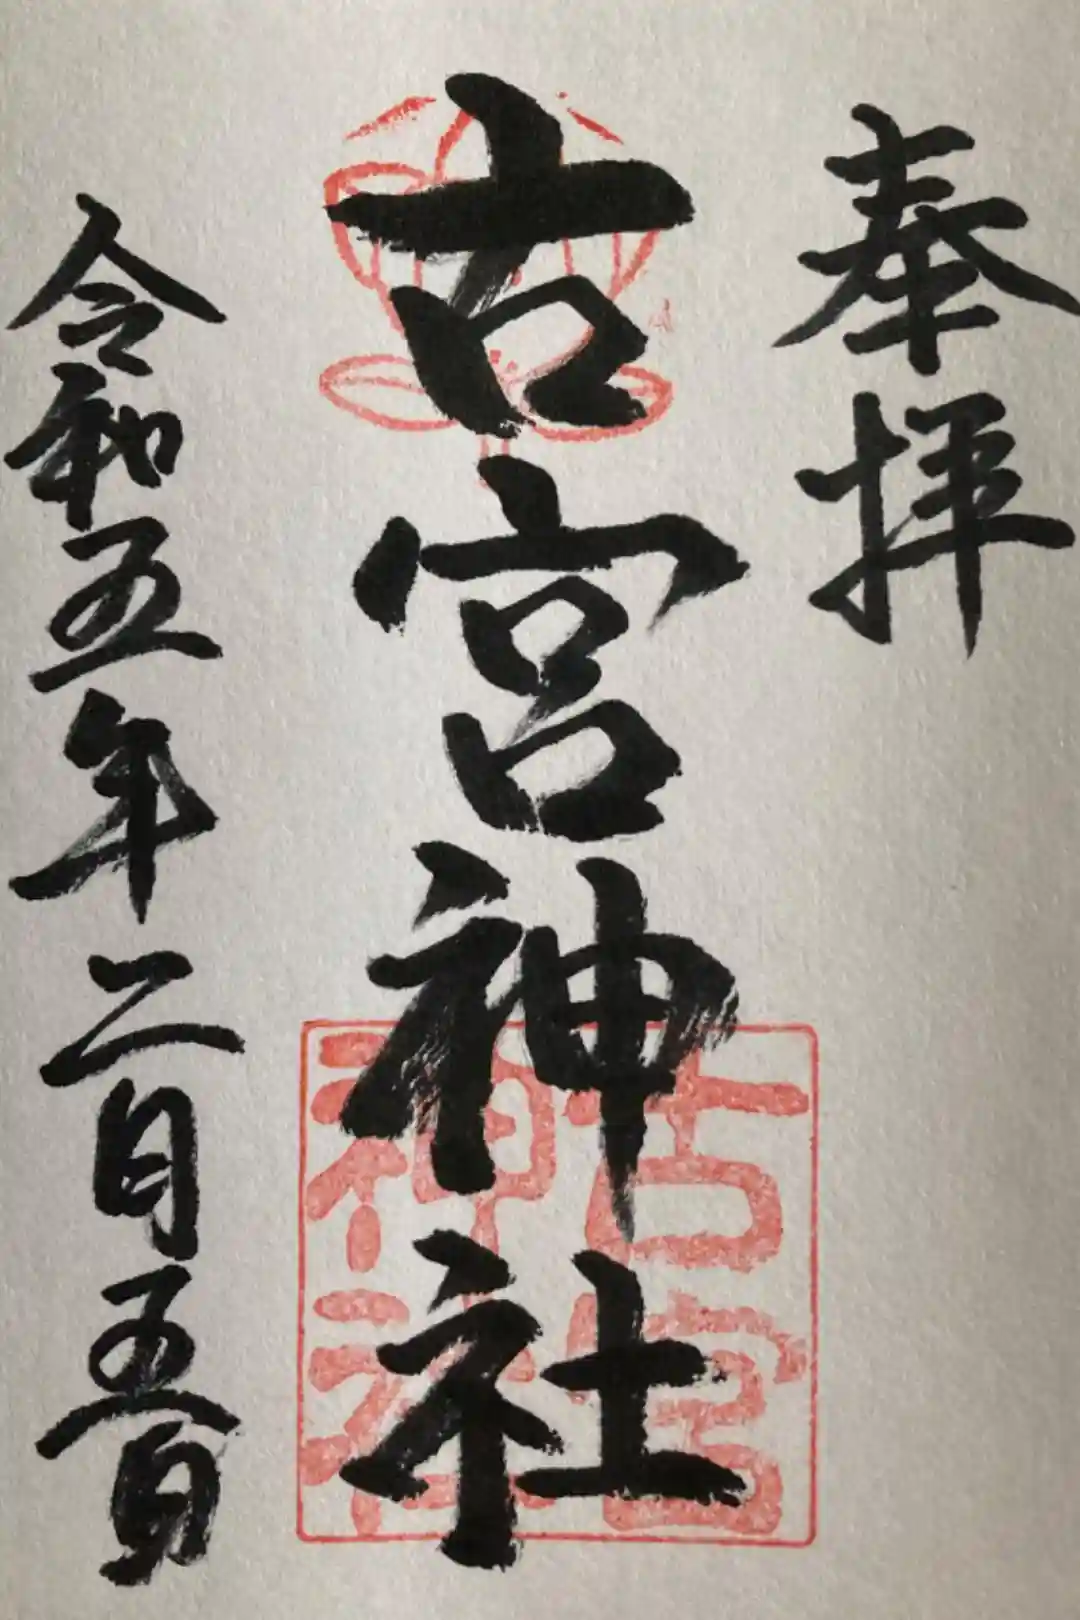 奉拝
古宮神社
古宮
神社
令和五年二月五日